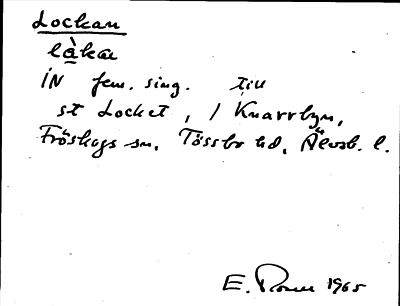 Lockan
låka
IN fem. sing. till
st Locket, / Knarrbyn,
Fröskogs sn, Tössbo hd, Älvsb. l.
E. 1965